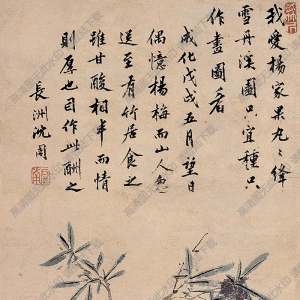 我愛楊家果丸々絳
雪丹深圖只宜種只
作畫圖看
成化戊戌五月望日
偶憶楊梅而山人忽
送至有竹居食之
雖甘酸相半而情
則厚也因作此酬之
長洲沈周